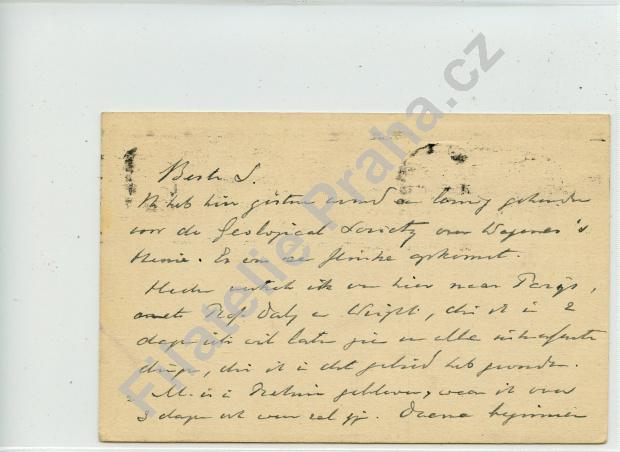 Beste S.
Ik heb hier gisteren avond een lezing gehouden
voor de Geological Society over Wegener's
theorie. Er was een flinke opkomst.
Heden vertrek ik van hier naar Parijs,
met Prof Daly en Wright, die ik in 2
dagen iets wil laten zien en alle interessante
dingen, die ik in dat gebied heb gevonden.
M. is in gebleven, waar ik over
3 dagen ook weer zal zijn. Daarna beginnen
Filatelie Praha.cz